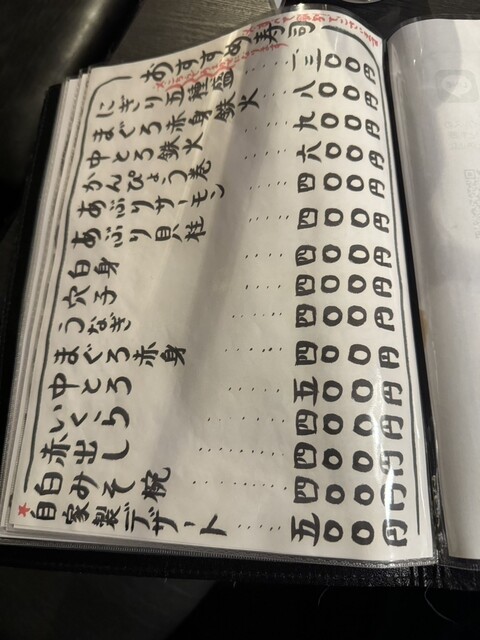 おすすめ寿司
にぎり五種盛 ····· 一、三〇〇円
まぐろ赤身鉄火 八〇〇円
中とろ鉄火 ····· 九〇〇円
かんぴょう巻 ····· 六〇〇円
あぶりサーモン ····· 四〇〇円
あぶり貝柱 ····· 四〇〇円
白身 ····· 四〇〇円
穴子 ····· 四〇〇円
うなぎ ····· 四〇〇円
まぐろ赤身 ····· 四〇〇円
中とろ ····· 五〇〇円
いくら ····· 四〇〇円
赤出し ····· 四〇〇円
白みそ椀 ····· 四〇〇円
★自家製デザート ····· 五〇〇円